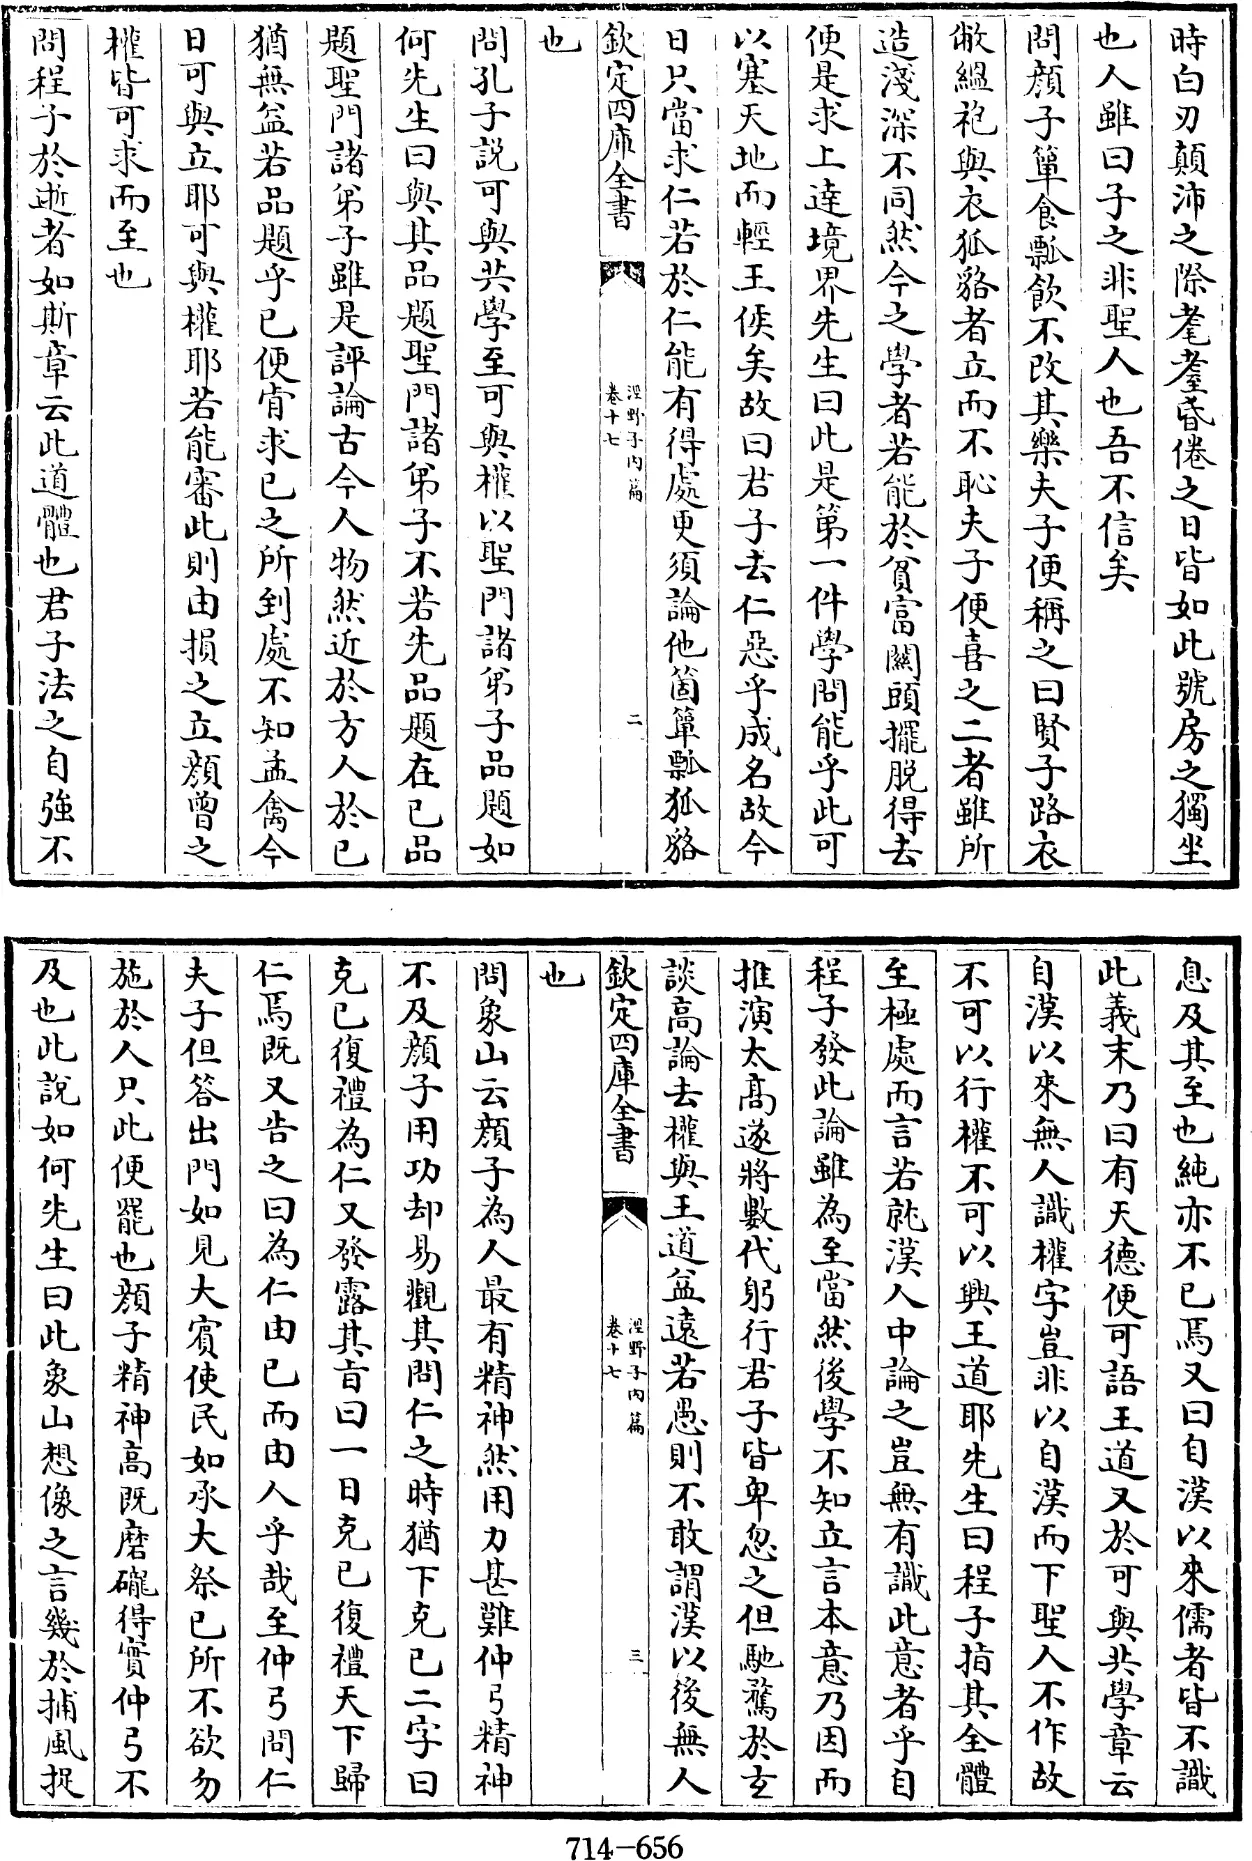 時白刃顛沛之際耄耋昏倦之日皆如此號房之獨坐
也人雖曰子之非聖人也吾不信矣
問顔子簞食瓢飲不改其樂夫子便稱之曰賢子路衣
敝縕袍與衣狐貉者立而不恥夫子便喜之二者雖所
造淺深不同然今之學者若能於貧富關頭擺脱得去
便是求上達境界先生曰此是第一件學問能乎此可
以塞天地而輕王侯矣故曰君子去仁惡乎成名故今
日只當求仁若於仁能有得處更須論他箇簞瓢狐貉
欽定四庫全書
涇野子内篇
卷十七
二
也
問孔子説可與共學至可與權以聖門諸弟子品題如
何先生曰與其品題聖門諸弟子不若先品題在已品
題聖門諸弟子雖是評論古今人物然近於方人於已
猶無益若品題乎已便肯求已之所到處不知孟禽今
日可與立耶可與權耶若能審此則由損之立顔曾之
權皆可求而至也
問程子於逝者如斯章云此道體也君子法之自強不
息及其至也純亦不已焉又曰自漢以來儒者皆不識
此義末乃曰有天德便可語王道又於可與共學章云
自漢以來無人識權字豈非以自漢而下聖人不作故
不可以行權不可以興王道耶先生曰程子指其全體
至極處而言若就漢人中論之豈無有識此意者乎自
程子發此論雖為至當然後學不知立言本意乃因而
推演太高遂將數代躬行君子皆卑忽之但馳騖於玄
談高論去權與王道益遠若愚則不敢謂漢以後無人
欽定四庫全書
涇野子内篇
卷十七
三
也
問象山云顔子為人最有精神然用力甚難仲弓精神
不及顔子用功却易觀其問仁之時猶下克已二字曰
克已復禮為仁又發露其旨曰一日克已復禮天下歸
仁焉既又告之曰為仁由已而由人乎哉至仲弓問仁
夫子但答出門如見大賓使民如承大祭已所不欲勿
施於人只此便罷也顔子精神高既磨礲得實仲弓不
及也此説如何先生曰此象山想像之言幾於捕風捉
714-656